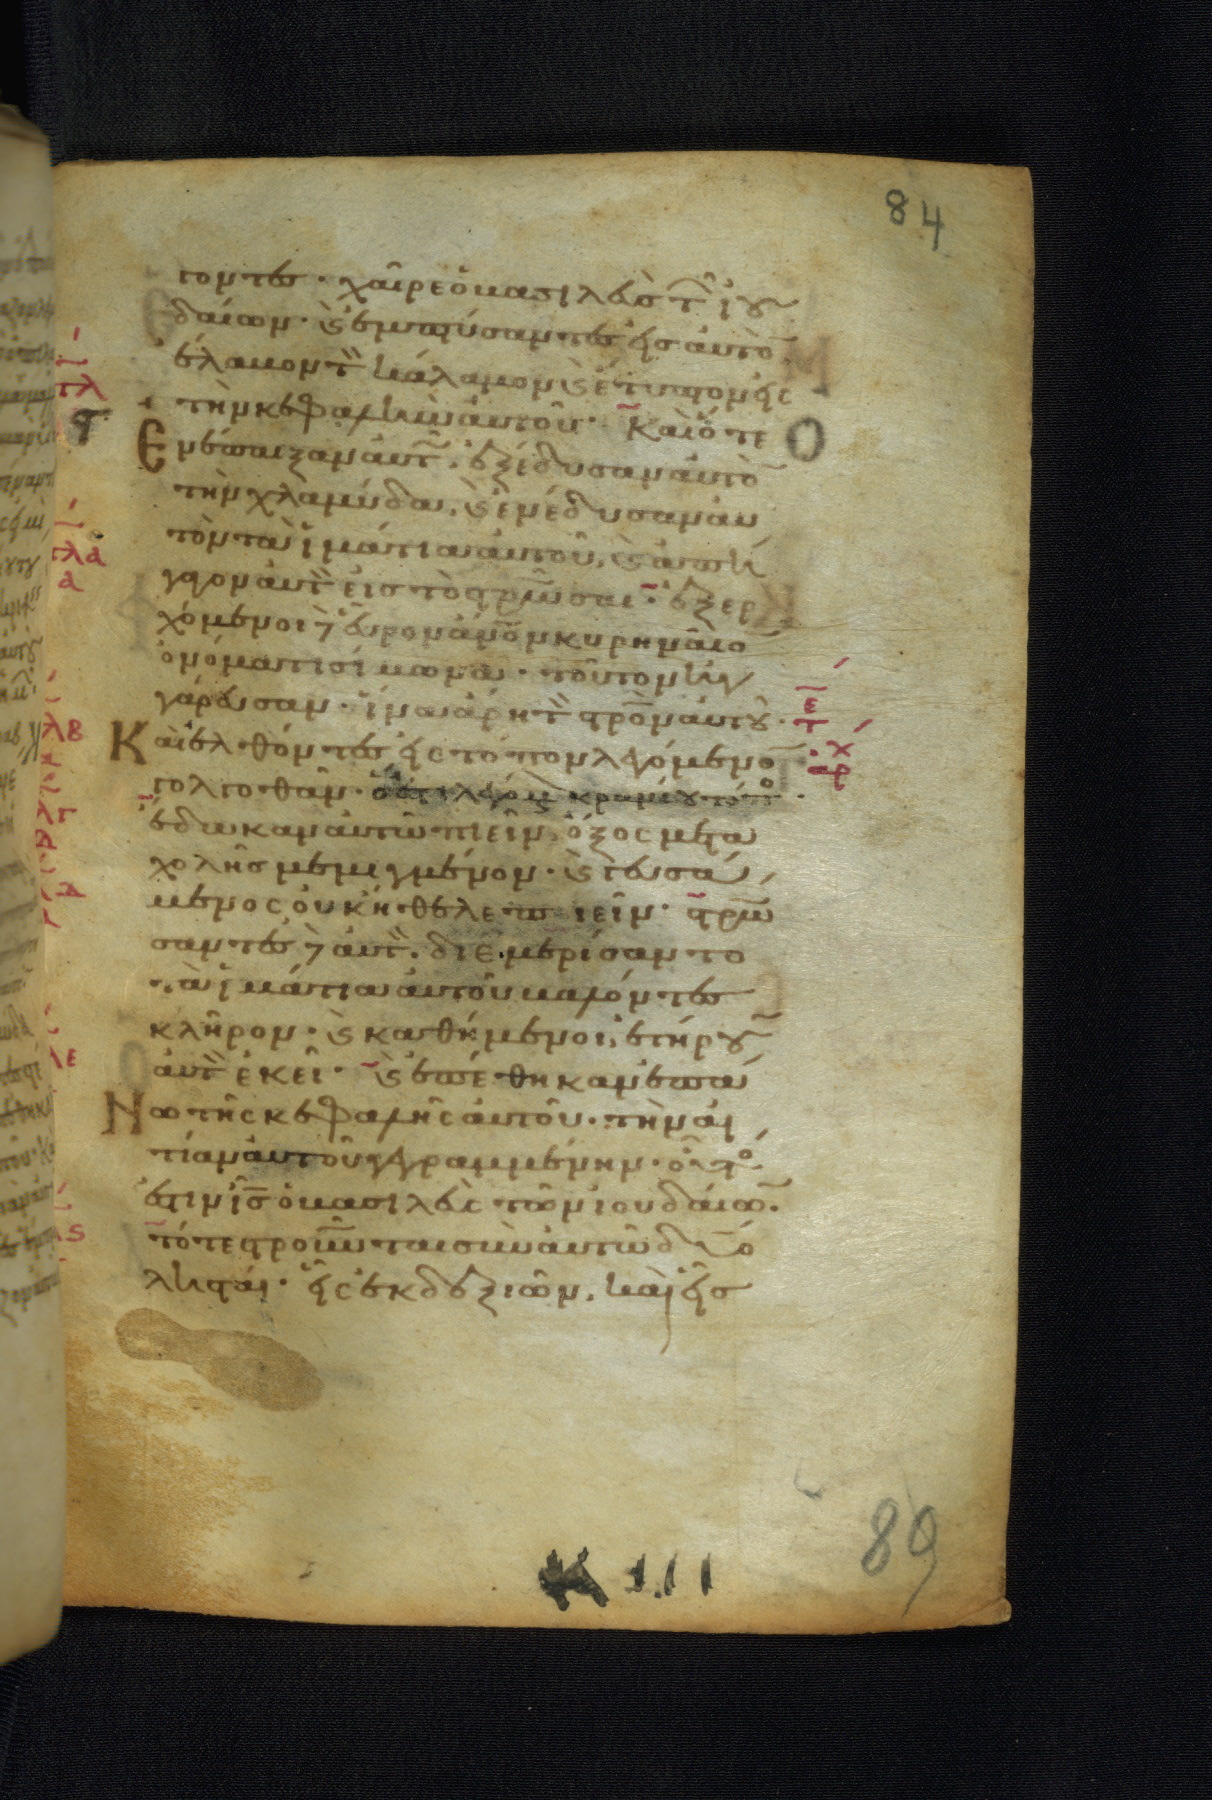 84
τοντες · χαῖρε ὁ βασιλεὺς τῶν ἰου
δαίων · καὶ ἐμπτύσαντες εἰς αὐτὸν
ἔλαβον τὸν κάλαμον καὶ ἔτυπτον εἰς
τὴν κεφαλὴν αὐτοῦ · Καὶ ὅτε
Ενέπαιξαν αὐτῶ, ἐξέδυσαν αὐτὸν
τὴν χλαμύδα, καὶ ἐνέδυσαν αὐ
τὸν τὰ ἱμάτια αὐτοῦ, καὶ ἀπή
γαγον αὐτὸν εἰς τὸ σταυρῶσαι · ἐξερ
χόμενοι δὲ εὗρον ἄνον κυρηναῖον
ὀνόματι σίμωνα · τοῦτον ἠγ
γάρευσαν · ἵνα ἄρη τὸν στρον αὐτοῦ ·
Καὶ ἐλθόντες εἰς τόπον λεγόμενον
γολγοθᾶν · ὅ ἐστι λεγόμενος κρανίου τόπος ·
ἔδωκαν αὐτῶ πιεῖν, ὄξος μετὰ
χολῆς μεμιγμένον · καὶ γευσά
μενος οὐκ ἤθελε πιεῖν · σταυρώ
σαντες δὲ αὐτὸν · διεμερίσαντο
τὰ ἱμάτια αὐτοῦ βαλόντες
κλῆρον · καὶ καθήμενοι, ἐτήρουν
αὐτὸν ἐκεῖ · καὶ ἐπέθηκαν ἐπά
Νω τῆς κεφαλῆς αὐτοῦ · τὴν αἰ
τίαν αὐτοῦ γεγραμμένην · οὗτός
ἐστιν ις ὁ βασιλεὺς τῶν ἰουδαίων ·
τότε σταυροῦνται σὺν αὐτῶ δύο
λησταί · εἷς ἐκ δεξιῶν, καὶ εἷς
89